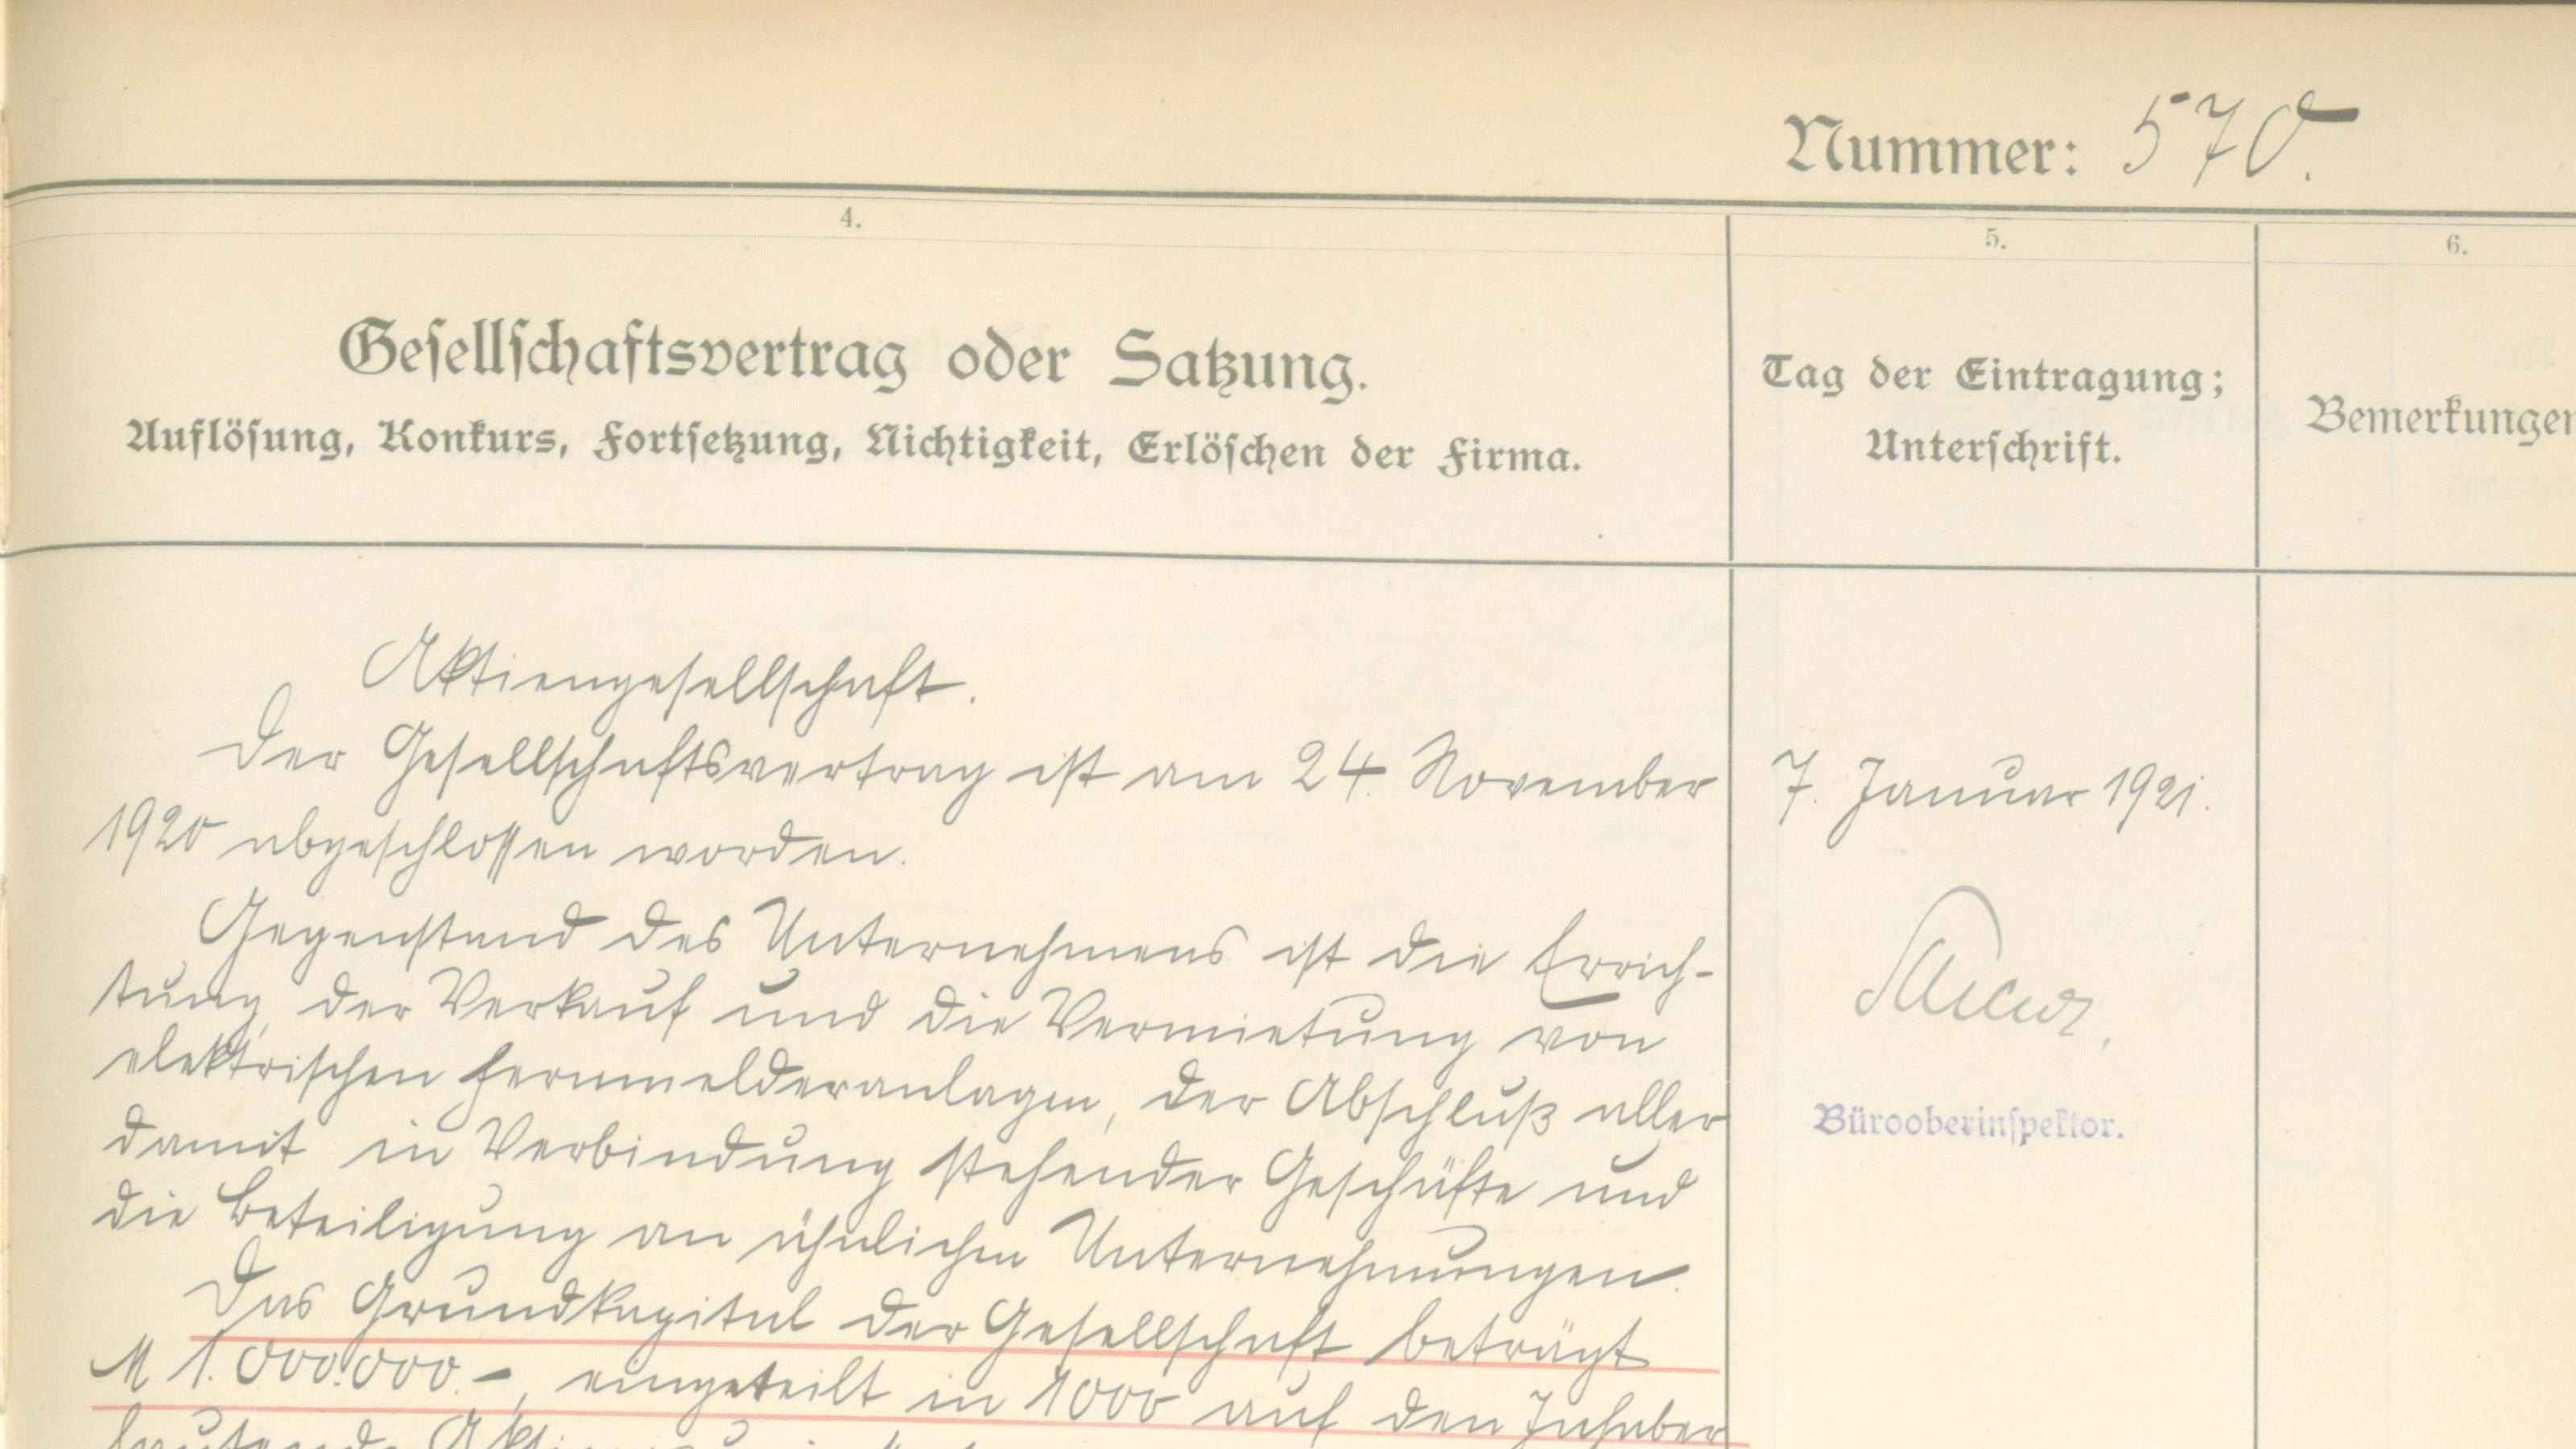 Nummer: 570.
4.
5.
6.
Gesellschaftsvertrag oder Satzung.
Auflösung, Konkurs, Fortsetzung, Nichtigkeit, Erlöschen der Firma.
Tag der Eintragung;
Unterschrift.
Bemerkungen
Aktiengesellschaft.
Der Gesellschaftsvertrag ist am 24. November
1920 abgeschlossen worden.
Gegenstand des Unternehmens ist die Errich-
tung, der Verkauf und die Vermietung von
elektrischen Fernmelderanlagen, der Abschluß aller
damit in Verbindung stehender Geschäfte und
die Beteiligung an ähnlichen Unternehmungen.
Das Grundkapital der Gesellschaft beträgt
M 1.000.000.-, eingeteilt in 1000 auf den Inhaber
lautende
7. Januar 1921.
Bürooberinspektor.